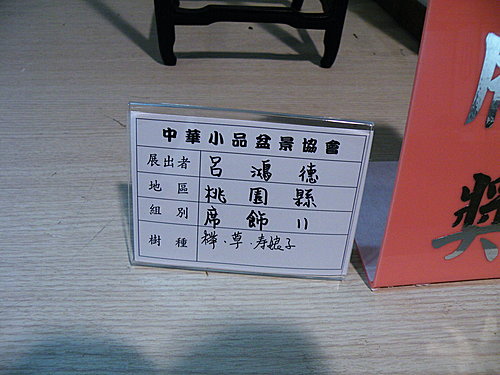 中華小品盆景協會
展出者 呂鴻德
地區 桃園縣
組別 席飾 11
樹種 櫸·草·寿娘子
獎